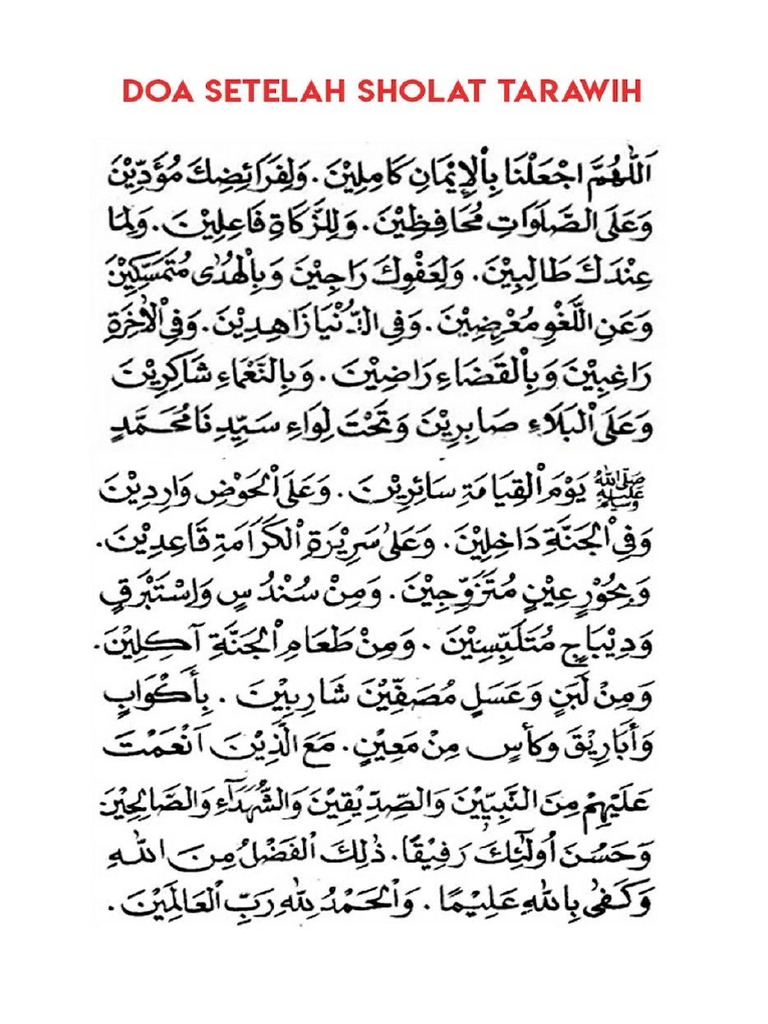 DOA SETELAH SHOLAT TARAWIH
اَللّٰهُمَّ اجْعَلْنَا بِاْلإِيْمَانِ كَامِلِيْنَ. وَلِفَرَائِضِكَ مُؤَدِّيْنَ
وَعَلَى الصَّلَوَاتِ مُحَافِظِيْنَ. وَلِلزَّكَاةِ فَاعِلِيْنَ. وَلِمَا
عِنْدَكَ طَالِبِيْنَ. وَلِعَفْوِكَ رَاجِيْنَ وَبِالْهُدٰى مُتَمَسِّكِيْنَ
وَعَنِ اللَّغْوِ مُعْرِضِيْنَ. وَفِى الدُّنْيَا زَاهِدِيْنَ. وَفِى اْلآخِرَةِ
رَاغِبِيْنَ وَبِالْقَضَاءِ رَاضِيْنَ. وَبِالنَّعْمَاءِ شَاكِرِيْنَ
وَعَلَى الْبَلَاءِ صَابِرِيْنَ وَتَحْتَ لِوَاءِ سَيِّدِنَا مُحَمَّدٍ
ﷺ يَوْمَ الْقِيَامَةِ سَائِرِيْنَ. وَعَلَى الْحَوْضِ وَارِدِيْنَ
وَفِى الْجَنَّةِ دَاخِلِيْنَ. وَعَلٰى سَرِيْرَةِ الْكَرَامَةِ قَاعِدِيْنَ.
وَبِحُوْرٍ عِيْنٍ مُتَزَوِّجِيْنَ. وَمِنْ سُنْدُسٍ وَاِسْتَبْرَقٍ
وَدِيْبَاجٍ مُتَلَبِّسِيْنَ. وَمِنْ طَعَامِ الْجَنَّةِ آكِلِيْنَ.
وَمِنْ لَبَنٍ وَعَسَلٍ مُصَفَّيْنَ شَارِبِيْنَ. بِأَكْوَابٍ
وَأَبَارِيْقَ وَكَأْسٍ مِنْ مَعِيْنٍ. مَعَ الَّذِيْنَ اَنْعَمْتَ
عَلَيْهِمْ مِنَ النَّبِيِّيْنَ وَالصِّدِّيْقِيْنَ وَالشُّهَدَآءِ وَالصَّالِحِيْنَ
وَحَسُنَ اُولٰئِكَ رَفِيْقًا. ذٰلِكَ الْفَضْلُ مِنَ اللهِ
وَكَفٰى بِاللهِ عَلِيْمًا. وَالْحَمْدُ لِلّٰهِ رَبِّ الْعَالَمِيْنَ.